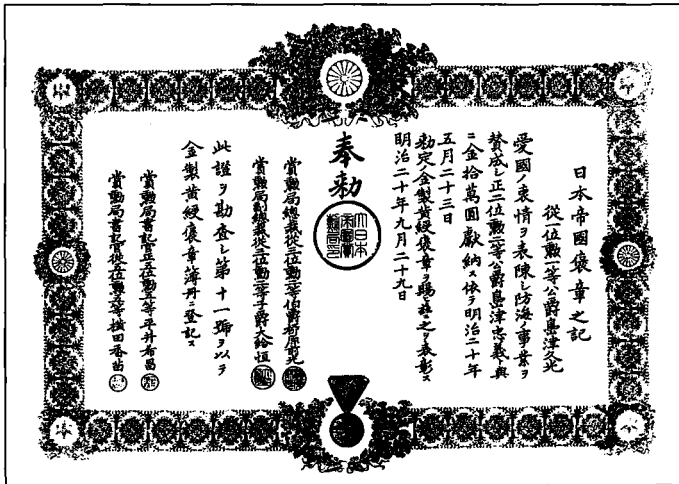 日本帝國褒章之記
從一位勲一等公爵島津久光
愛國ノ衷情ヲ表陳シ防海ノ事業ヲ
賛成シ正二位勲一等公爵島津忠義ト與
ニ金拾萬圓獻納ス依テ明治二十年
五月二十三日
勅定金製黄綬褒章ヲ賜ヒ茲ニ之ヲ表彰ス
明治二十年九月二十九日
奉勅
大日本帝國賞勲局印
賞勲局總裁從三位勲二等伯爵柳原前光
賞勲局副總裁從三位勲二等子爵大給恒
此證ヲ勘査シ第十一號ヲ以テ
金製黄綬褒章簿冊ニ登記ス
賞勲局書記官 平井希昌
賞勲局書記官 横田香苗